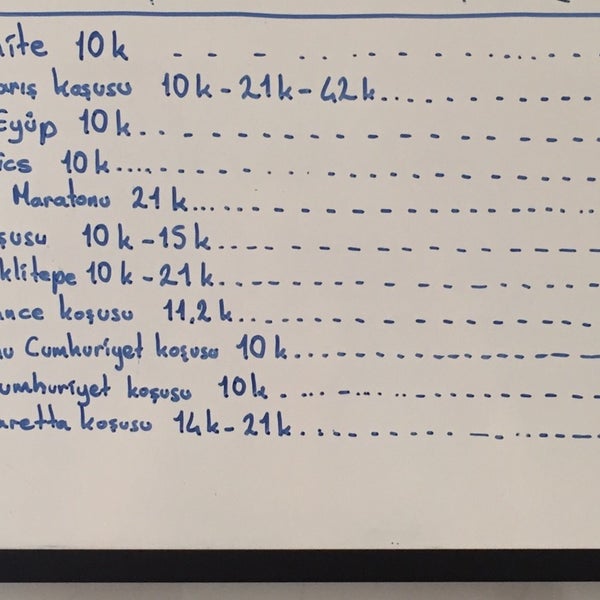 ite 10k
arış koşusu 10k-21k-42k
Eyüp 10k
ics 10k
Maratonu 21k
şusu 10k-15k
klitepe 10k-21k
ance koşusu 11,2k
u Cumhuriyet koşusu 10k
umhuriyet koşusu 10k
aretta koşusu 14k-21k